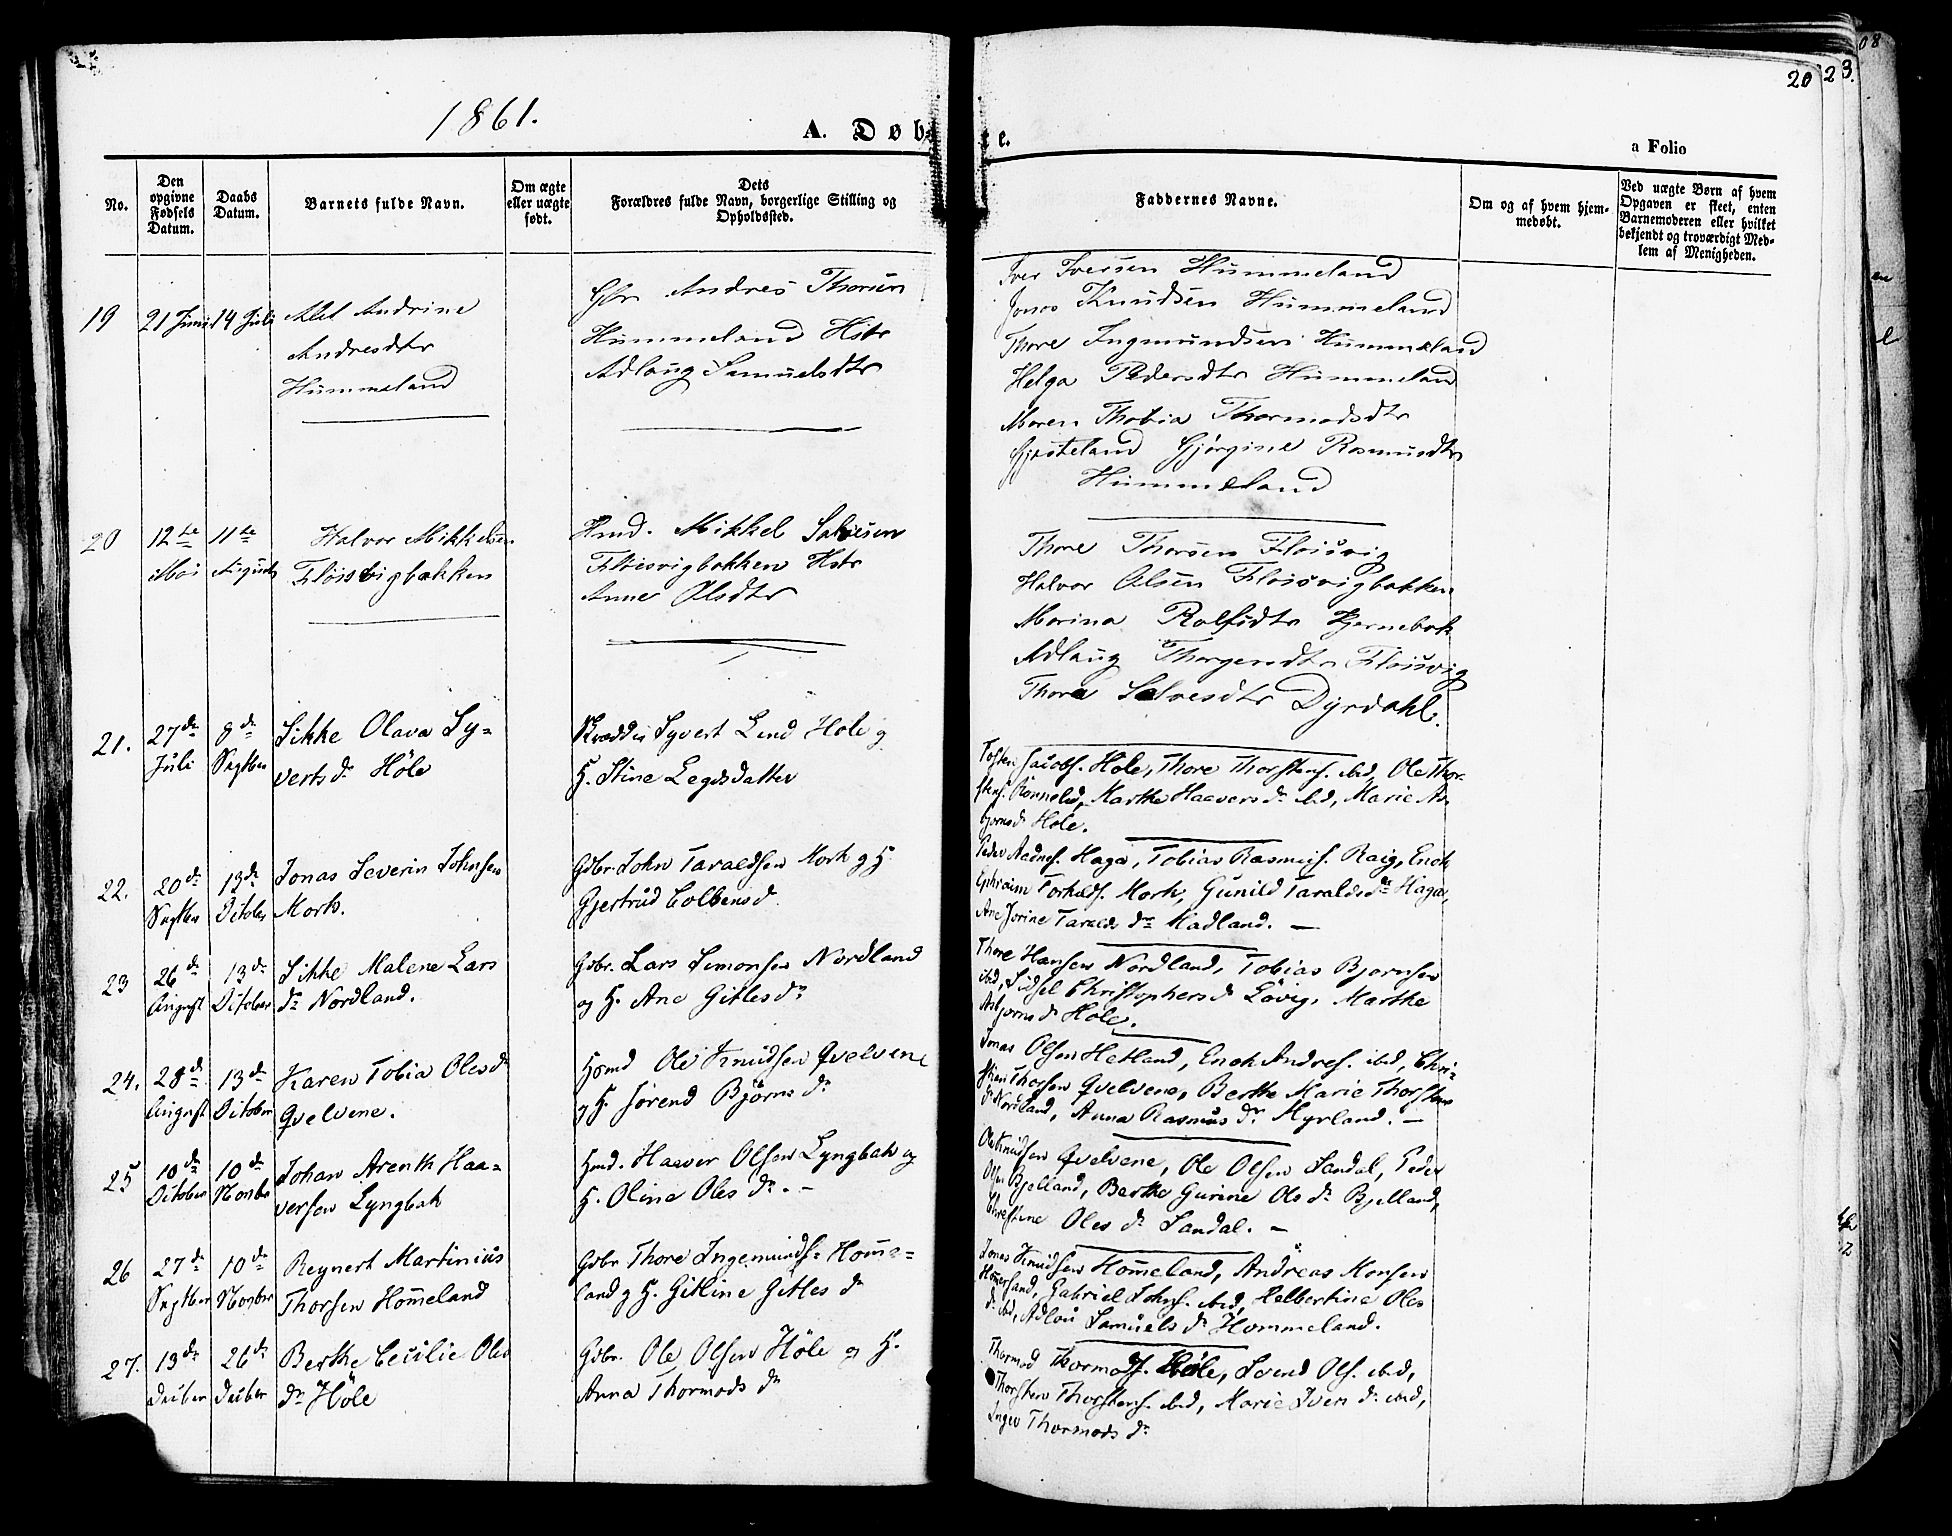 1861.
A. Døb-
te.
a Folio
20
23.
08
No.
Den opgivne Fødsels Datum.
Daabs Datum.
Barnets fulde Navn.
Om ægte eller uægte født.
Dets Forældres fulde Navn, borgerlige Stilling og Opholdssted.
Faddernes Navne.
Om og af hvem hjemmedøbt.
Ved uægte Børn af hvem
Opgaven er skeet, enten
Barnemoderen eller hvilket
bekjendt og troværdigt Med-
lem af Menigheden.
19 21 Juni 14 Juli
Andrine
Andresdtr
Hummeland
Gbr Andres Thorsen
Hummeland Hstr
Adlaug Samuelsdtr
Iver Iversen Hummeland
Jonas Knudsen Hummeland
Thore Ingmundsen Hummeland
Helga Pedersdtr Hummeland
Maren Thobia Thormodsdtr
Gjørgine Rosmundtr
Hummeland
20 12te 11te
Mai August
Halvor Mikkelsen
Floisvigbakken
Hmd. Mikkel Salvesen
Floisvigbakken Hstr
Anne Olsdtr
Thore Thorsen Floisvig
Halvor Olsen Floisvigbakken
Marina Rolfsdtr
Adlaug Thorgersdtr Floisvig
Thora Salvesdtr Dyrdahl.
21. 27de 8de
Juli Septber
Sikke Olava Sy-
vertsdr Høle
Skrædder Syvert Lund Hole og
H. Stine Legdsdatter
Tosten Jacobs. Hole, Thore Thorstens. ibid, Ole Thor-
stens. Rønneli, Marthe Haaversdr ibid, Marie As-
bjornsdr Hole.
22. 20de 13de
Septber October
Jonas Severin Johnsen
Mork.
Gdbr. John Taraldsen Mork og H.
Gjertrud Colbensd.
Peder Aadnes. Haga, Tobias Rasmuss. Raig, Enok
Ephraim Torkelds. Mork, Gunild Taraldsdr Haga,
Ane Jorine Taraldsdr Madland. —
23 26de 13de
August October
Sikke Malene Lars
dr Nordland.
Gdbr. Lars Simonsen Nordland
og H. Ane Gitlesdr
Thore Hansen Nordland, Tobias Bjornsen
ibid, Sidsel Christophersdr Løvig, Marthe
Asbjornsdr Hole.
24. 28de 13de
August October
Karen Tobia Olesdr
Qvelvene.
Hsmd Ole Knudsen Qvelvene
og H. Sørend Bjørnsdr
Jonas Olsen Hetland, Enok Andres. ibid, Chri-
stian Thorsen Qvelvene, Berthe Marie Thorstens
dr Nordland, Anna Rasmusdr Myrland. —
25 10de 10de
October Novbr
Johan Arenth Haa-
versen Lyngbak
Hmd. Haaver Olsen Lyngbak og
H. Oline Olesdr. —
Ole Knudsen Qvelvene, Ole Olsen Sandal, Peder
Olsen Bjelland, Berthe Gurine Olsdr Bjelland,
Christine Olesdr Sandal. —
26 27de 10de
Septber Novbr
Reynert Martinius
Thorsen Hom̄eland
Gdbr Thore Ingemunds. Hom̄e-
land og H. Gitline Gitlesdr
Jonas Knudsen Hom̄eland, Andreas Monsen
Hom̄ersand, Gabriel Johns. ibid, Helbertine Oles
dr ibid, Adlou Samuelsdr Hommeland.
27. 13de 26de
Decber Decber
Berthe Cecilie Oles
dr Høle
Gdbr. Ole Olsen Høle og H.
Anna Thormodsdr
Thormod Thormods. Høle, Svend Ols. ibid,
Thorsten Thorstens. ibid, Marie Iversdr ibid,
Inger Thormodsdr